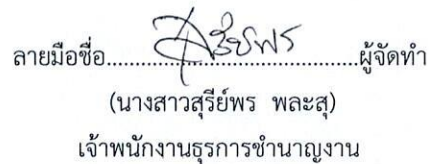 ลายมือชื่อ......................................ผู้จัดทำ
(นางสาวสุรีย์พร พละสุ)
เจ้าพนักงานธุรการชำนาญงาน